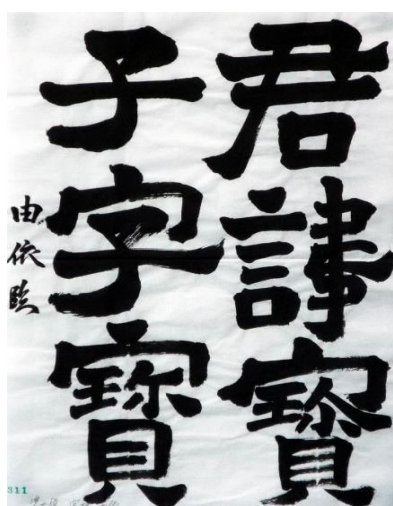 君諱寶
子字寶
由依臨
311